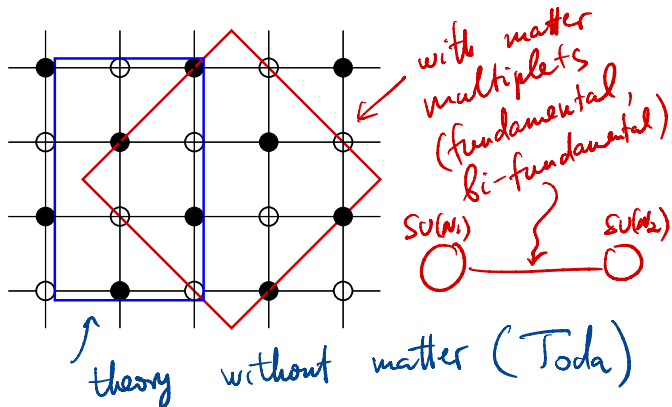 with matter
multiplets
(fundamental,
bi-fundamental)
SU(N₁) SU(N₂)
theory without matter (Toda)